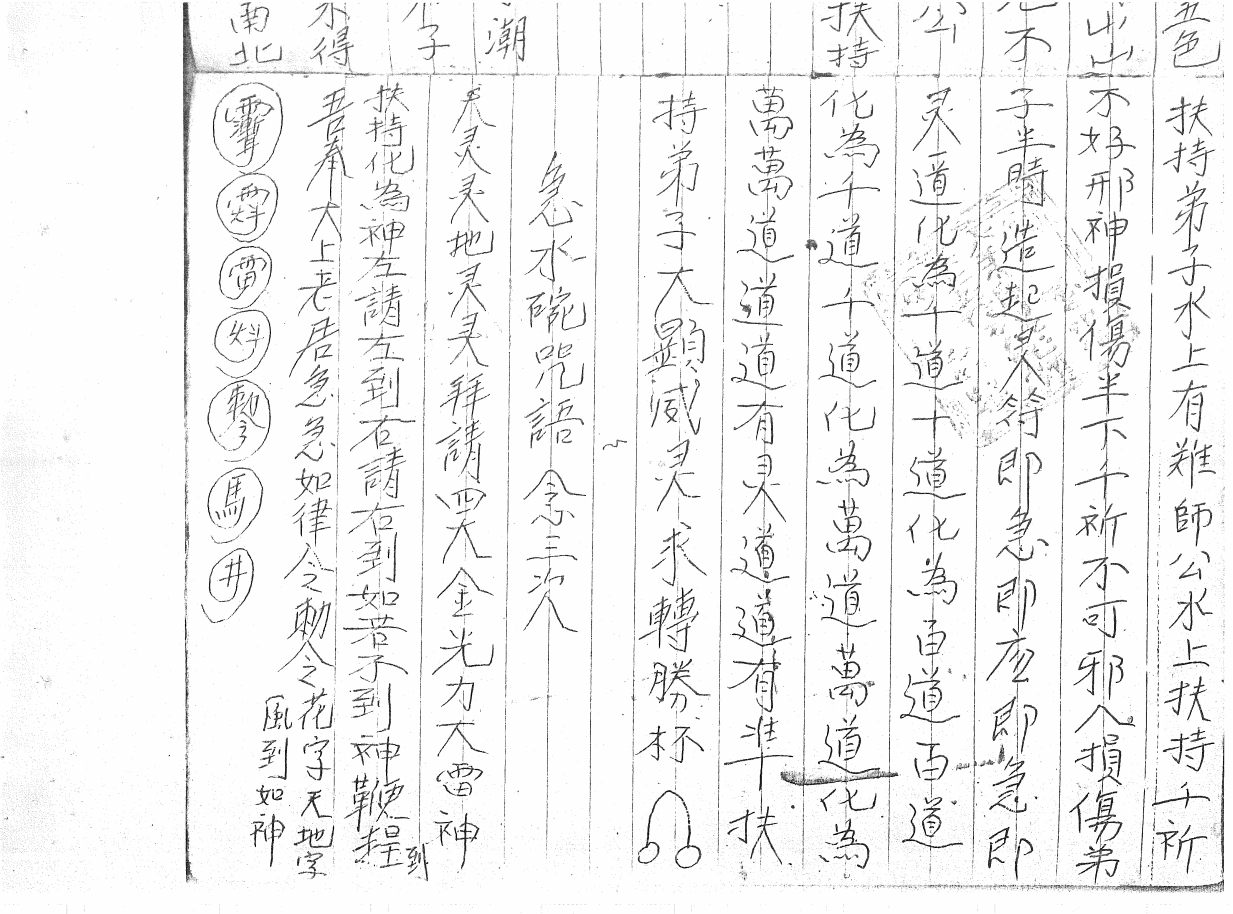 五色
不
扶持
潮
子
得
南北
扶持弟子水上有难師公水上扶持千祈
不好邪神損傷半下千祈不可邪人損傷弟
子半時造起灵符即急即应即急即
灵一道化為十道十道化為百道百道
化為千道千道化為萬道萬道化為
萬萬道道道有灵道道有準扶
持弟子大顯威灵求轉勝杯
急水碗咒語 念三次
天灵灵地灵灵拜請四大金光力大雷神
扶持化為神左請左到右請右到如若不到神鞭趕到
吾奉太上老君急急如律令之勅令花字天地字
風到如神
雷
馬
井